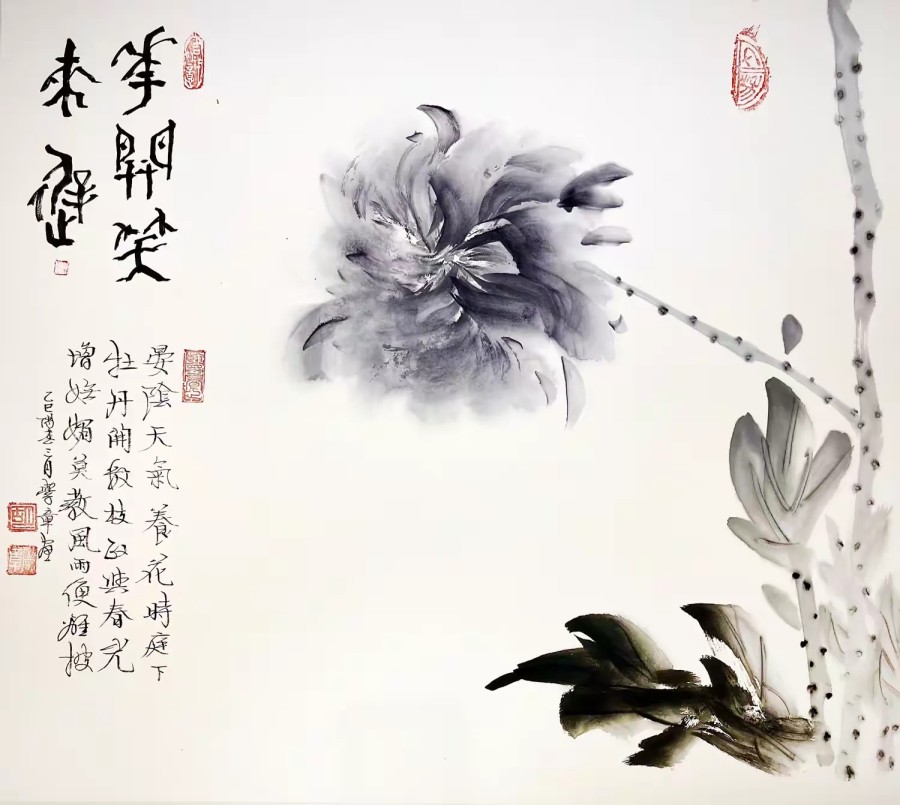 華開笑
晏陰天氣養花時庭下
牡丹開數枝正與春光
增嫵媚莫教風雨便離披
乙巳陽春三月雲章畫